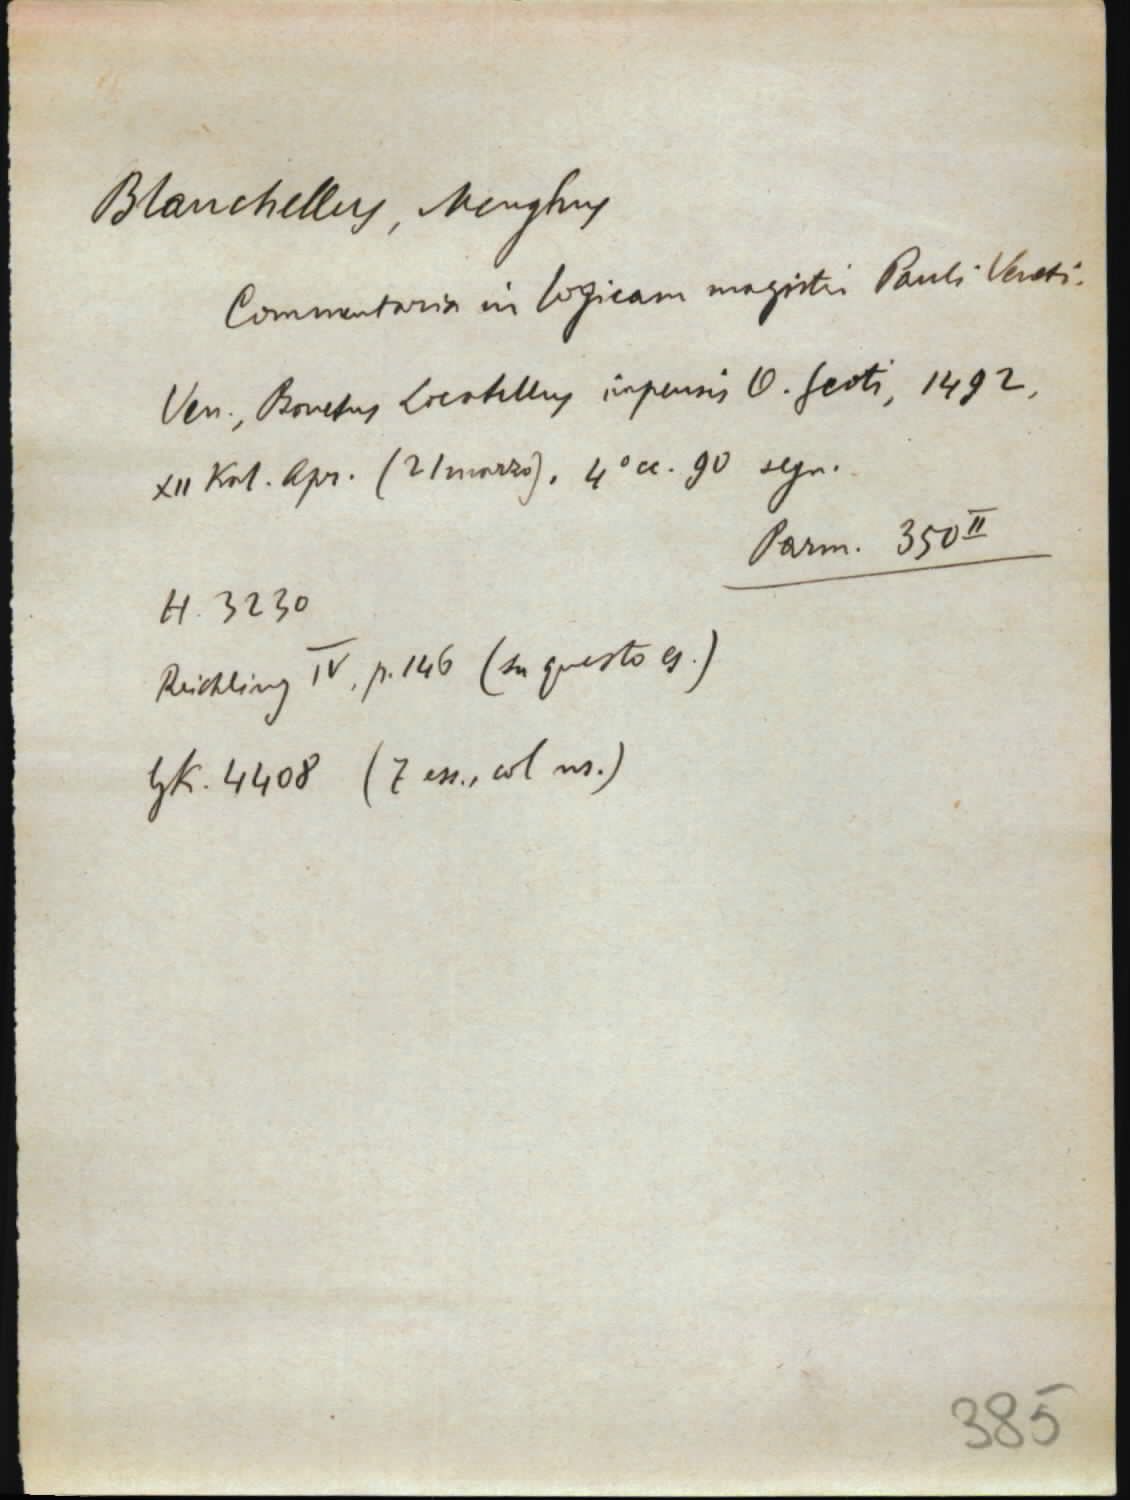 Blanchellus, Menghus
Commentaria in logicam magistri Pauli Veneti.
Ven., Bonetus Locatellus impensis O. Scoti, 1492,
XII Kal. Apr. (21 marzo), 4° cc. 90 segn.
Parm. 350 II
H. 3230
Reichling IV, p. 146 (su questo es.)
GK. 4408 (7 ess., col ns.)
385